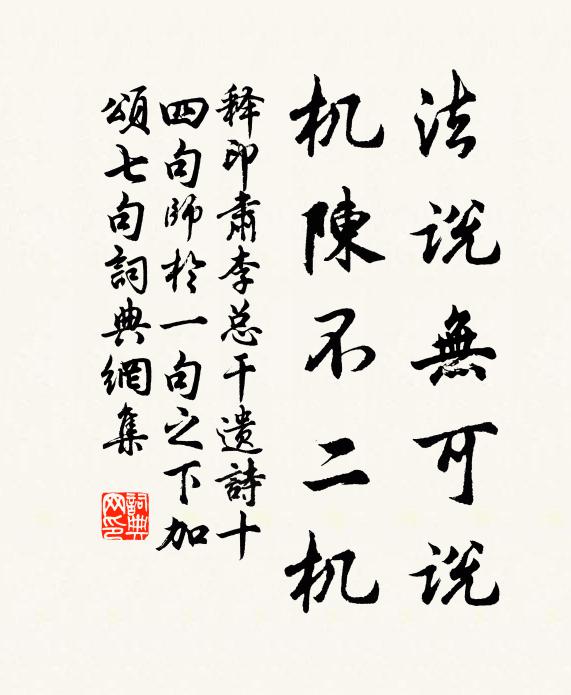 法説無可説
机陳不二机
释印肅李总干遗詩十
四句師於一句之下加
頌七句詞典網集
詞典网印